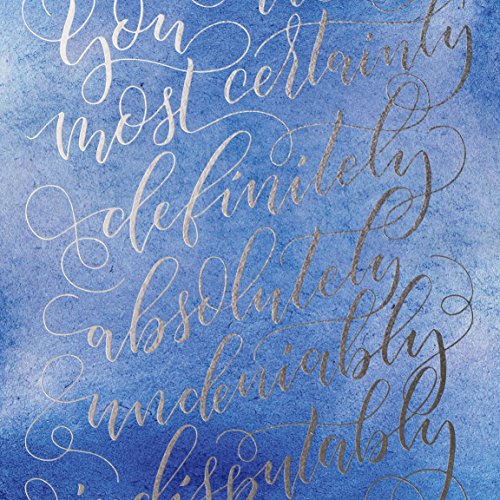 You
most certainly
definitely
absolutely
undeniably
indisputably